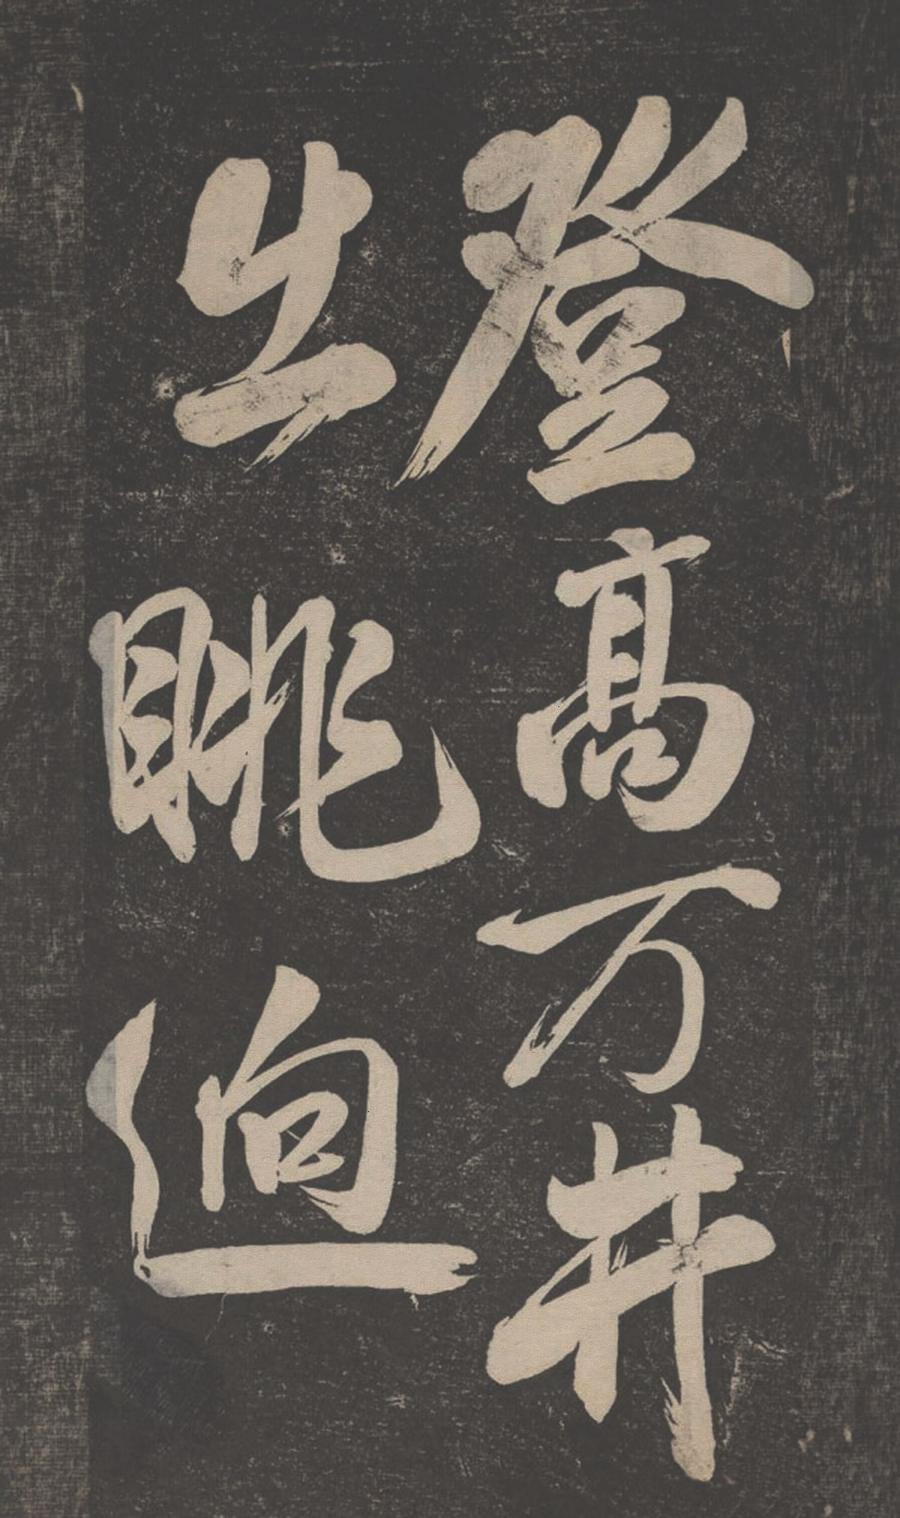 登高万井
出眺迥